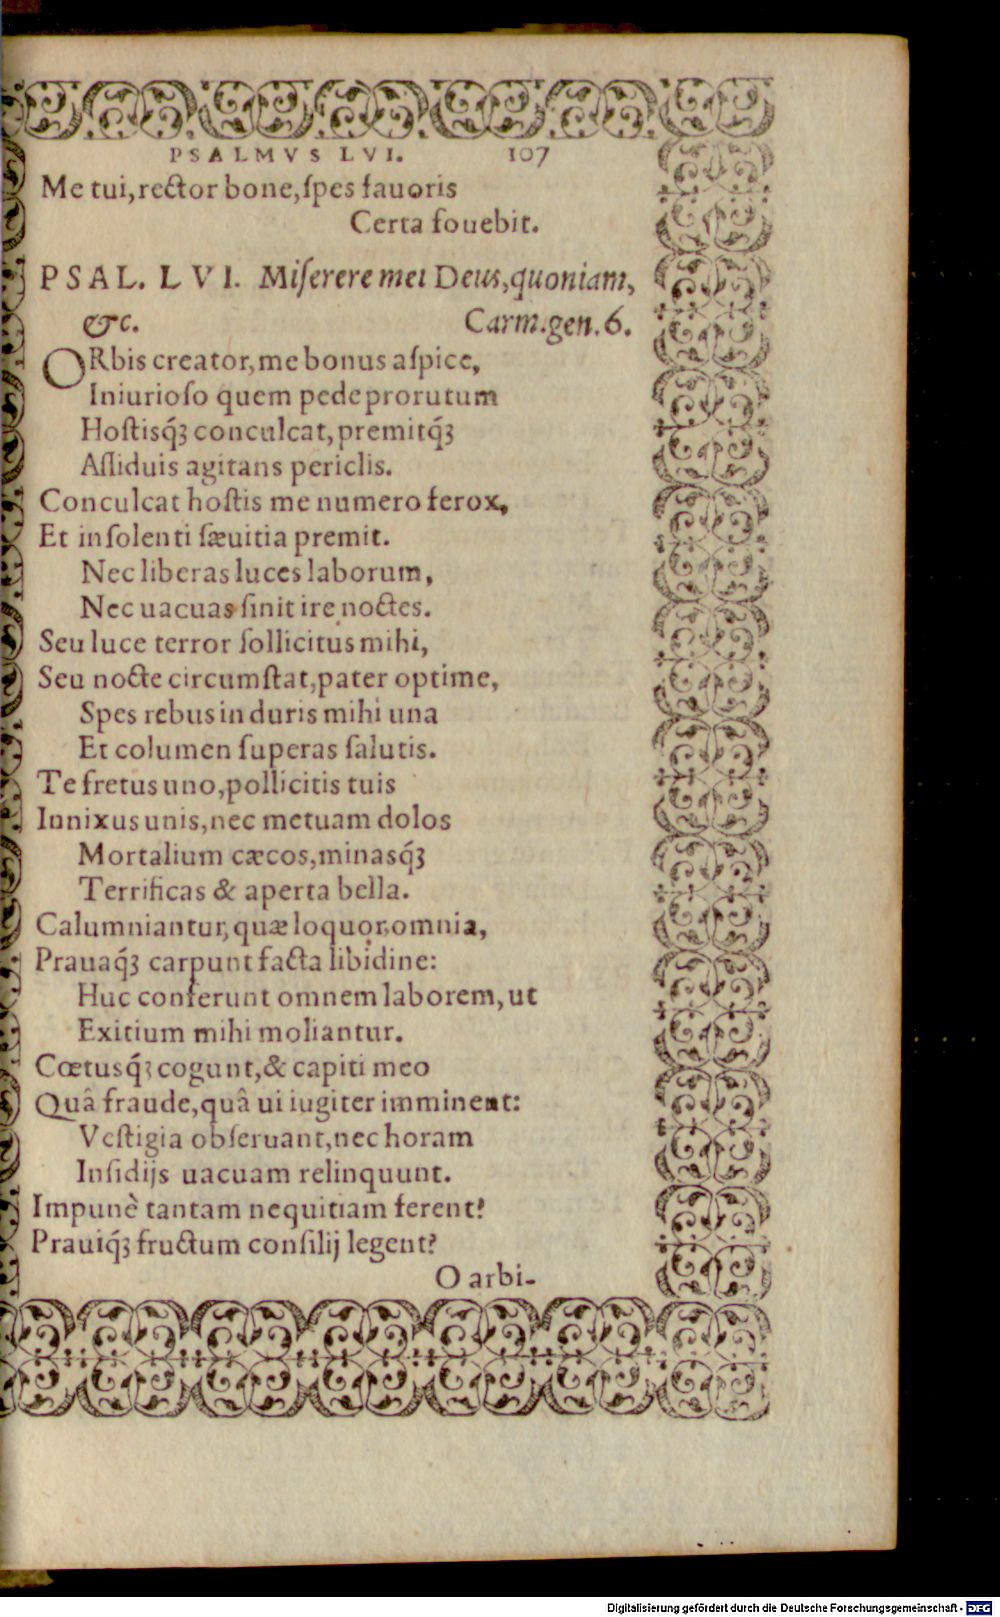 PSALMVS LVI. 107
Me tui, rector bone, ſpes fauoris
Certa fouebit.
PSAL. LVI. Miſerere mei Deus, quoniam,
&c. Carm. gen. 6.
ORbis creator, me bonus aſpice,
Iniurioſo quem pede prorutum
Hoſtisq́ꝫ conculcat, premitq́ꝫ
Aſſiduis agitans periclis.
Conculcat hoſtis me numero ferox,
Et inſolenti ſæuitia premit.
Nec liberas luces laborum,
Nec uacuas ſinit ire noctes.
Seu luce terror ſollicitus mihi,
Seu nocte circumſtat, pater optime,
Spes rebus in duris mihi una
Et columen ſuperas ſalutis.
Te fretus uno, pollicitis tuis
Innixus unis, nec metuam dolos
Mortalium cæcos, minasq́ꝫ
Terrificas & aperta bella.
Calumniantur, quæ loquor, omnia,
Prauaq́ꝫ carpunt facta libidine:
Huc conferunt omnem laborem, ut
Exitium mihi moliantur.
Cœtusq́ꝫ cogunt, & capiti meo
Quâ fraude, quâ ui iugiter imminent:
Veſtigia obſeruant, nec horam
Inſidijs uacuam relinquunt.
Impunè tantam nequitiam ferent?
Prauiq́ꝫ fructum conſilij legent?
O arbi-
Digitalisierung gefördert durch die Deutsche Forschungsgemeinschaft - DFG